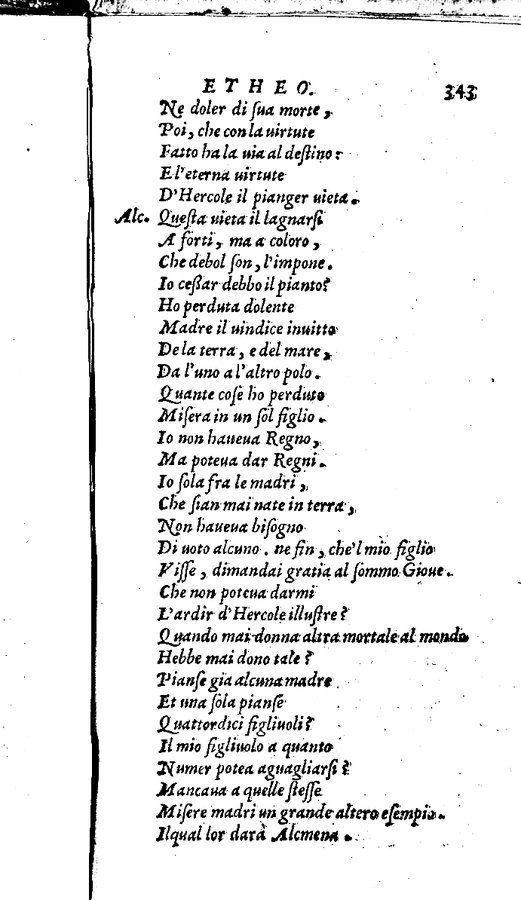 ETHEO. 343
Ne doler di ſua morte,
Poi, che con la uirtute
Fatto ha la uia al deſtino:
E l'eterna uirtute
D'Hercole il pianger uieta.
Alc. Queſta uieta il lagnarſi
A forti, ma a coloro,
Che debol ſon, l'impone.
Io ceſſar debbo il pianto?
Ho perduta dolente
Madre il uindice inuitto
De la terra, e del mare,
Da l'uno a l'altro polo.
Quante coſe ho perduto
Miſera in un ſol figlio.
Io non haueua Regno,
Ma poteua dar Regni.
Io ſola fra le madri,
Che ſian mai nate in terra,
Non haueua biſogno
Di uoto alcuno. ne fin, che'l mio figlio
Viſſe, dimandai gratia al ſommo Gioue.
Che non poteua darmi
L'ardir d'Hercole illuſtre?
Quando mai donna altra mortale al mondo
Hebbe mai dono tale?
Pianſe gia alcuna madre
Et una ſola pianſe
Quattordici figliuoli?
Il mio figliuolo a quanto
Numer potea aguagliarſi?
Mancaua a quelle ſteſſe
Miſere madri un grande altero eſempio.
Ilqual lor darà Alcmena.